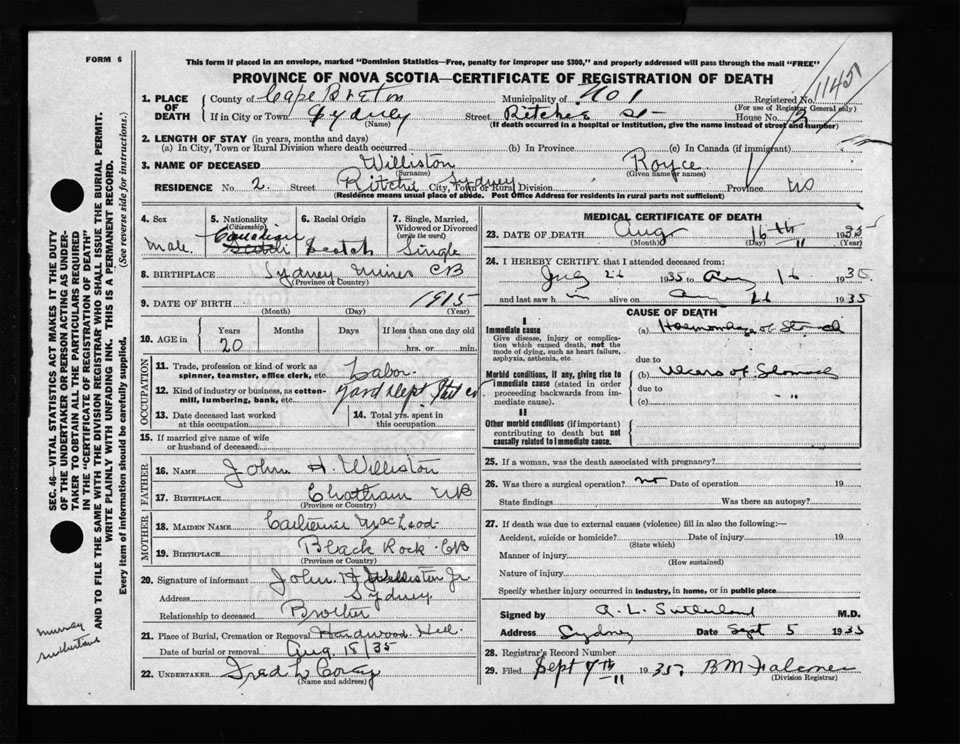 FORM 6
This form if placed in an envelope, marked "Dominion Statistics—Free, penalty for improper use $300," and properly addressed will pass through the mail "FREE"
PROVINCE OF NOVA SCOTIA—CERTIFICATE OF REGISTRATION OF DEATH
1145
1. PLACE OF DEATH
County of Cape Breton Municipality of No 1 Registered No.
(For use of Registrar General only)
If in City or Town Sydney Street Ritchie St House No.
(Name) (If death occurred in a hospital or institution, give the name instead of street and number)
2. LENGTH OF STAY (in years, months and days)
(a) In City, Town or Rural Division where death occurred (b) In Province (c) In Canada (if immigrant)
3. NAME OF DECEASED Williston Royce
(Surname) (Given name or names)
RESIDENCE No. 2. Street Ritchie City, Town or Rural Division Sydney Province NS
(Residence means usual place of abode. Post Office Address for residents in rural parts not sufficient)
4. Sex
Male
5. Nationality
(Citizenship)
Canadian
Scotch
6. Racial Origin
Scotch
7. Single, Married, Widowed or Divorced
(write the word)
Single
8. BIRTHPLACE Sydney Mines CB
(Province or Country)
9. DATE OF BIRTH 1915
(Month) (Day) (Year)
10. AGE in
Years Months Days If less than one day old
20 hrs. or min.
OCCUPATION
11. Trade, profession or kind of work as spinner, teamster, office clerk, etc. Labor
12. Kind of industry or business, as cotton-mill, lumbering, bank, etc. Yard Dept
13. Date deceased last worked at this occupation
14. Total yrs. spent in this occupation
15. If married give name of wife or husband of deceased
FATHER
16. NAME John H. Williston
17. BIRTHPLACE Chatham NB
(Province or Country)
MOTHER
18. MAIDEN NAME Catherine MacLeod
19. BIRTHPLACE Black Rock CB
(Province or Country)
20. Signature of informant John H Williston Jr
Address Sydney
Relationship to deceased Brother
21. Place of Burial, Cremation or Removal Hardwood Hill
Date of burial or removal Aug. 18/35
22. UNDERTAKER Fred L
(Name and address)
MEDICAL CERTIFICATE OF DEATH
23. DATE OF DEATH Aug 16th 1935
(Month) (Day) (Year)
24. I HEREBY CERTIFY that I attended deceased from:
1935 to Aug 16 1935
and last saw h m alive on Aug 1935
CAUSE OF DEATH
I
Immediate cause
Give disease, injury or complication which caused death, not the mode of dying, such as heart failure, asphyxia, asthenia, etc.
(a) Haemorrhage of Stomach
due to
Morbid conditions, if any, giving rise to immediate cause (stated in order proceeding backwards from immediate cause).
(b) Ulcers of Stomach
due to
(c)
II
Other morbid conditions (if important) contributing to death but not causally related to immediate cause.
25. If a woman, was the death associated with pregnancy?
26. Was there a surgical operation? no Date of operation 19
State findings Was there an autopsy?
27. If death was due to external causes (violence) fill in also the following:—
Accident, suicide or homicide? Date of injury 19
(State which)
Manner of injury
(How sustained)
Nature of injury
Specify whether injury occurred in industry, in home, or in public place
Signed by A. L. Sutherland M.D.
Address Sydney Date Sept 5 1935
28. Registrar's Record Number
29. Filed Sept 7th 1935 B M Falconer
(Division Registrar)
SEC. 46—VITAL STATISTICS ACT MAKES IT THE DUTY
OF THE UNDERTAKER OR PERSON ACTING AS UNDER-
TAKER TO OBTAIN ALL THE PARTICULARS REQUIRED
IN THE "CERTIFICATE OF REGISTRATION OF DEATH"
AND TO FILE THE SAME WITH THE DIVISION REGISTRAR WHO SHALL ISSUE THE BURIAL PERMIT.
WRITE PLAINLY WITH UNFADING INK. THIS IS A PERMANENT RECORD.
Every item of information should be carefully supplied. (See reverse side for instructions.)
Murray
Sutherland